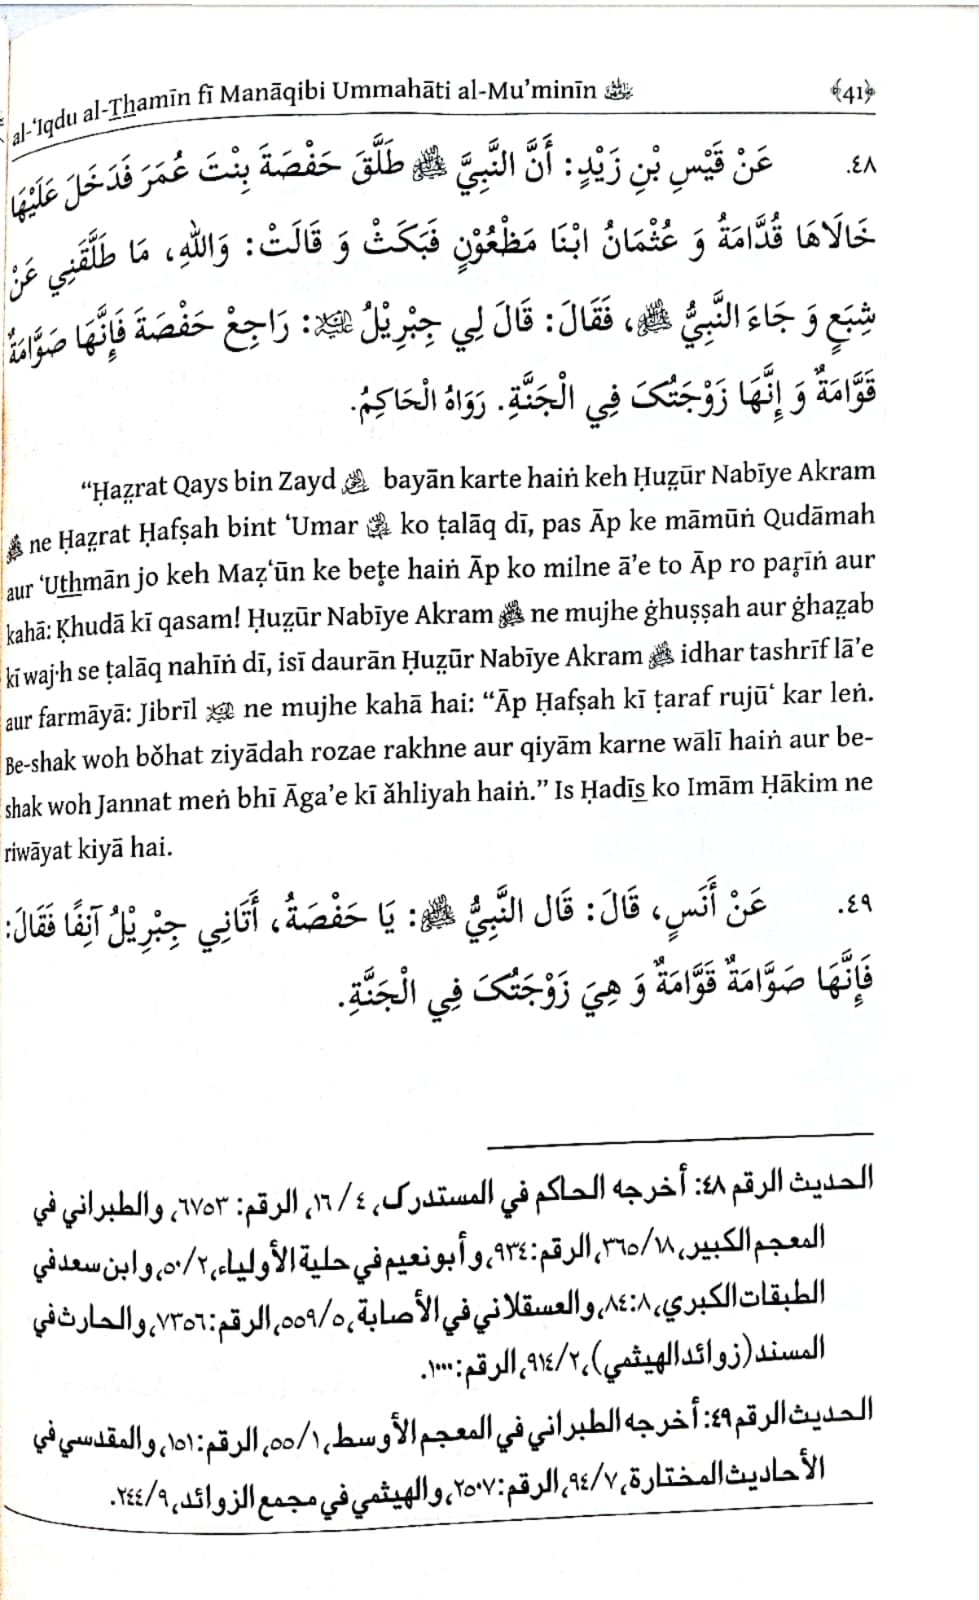 al-‘Iqdu al-Thamīn fī Manāqibi Ummahāti al-Mu’minīn ﴾41﴿
٤٨. عَنْ قَيْسِ بْنِ زَيْدٍ: أَنَّ النَّبِيَّ ﷺ طَلَّقَ حَفْصَةَ بِنْتَ عُمَرَ فَدَخَلَ عَلَيْهَا
خَالَاهَا قُدَّامَةُ وَ عُثْمَانُ ابْنَا مَظْعُوْنٍ فَبَكَتْ وَ قَالَتْ: وَاللهِ، مَا طَلَّقَنِي عَنْ
شِبَعٍ وَ جَاءَ النَّبِيُّ ﷺ، فَقَالَ: قَالَ لِي جِبْرِيْلُ عليه السلام: رَاجِعْ حَفْصَةَ فَإِنَّهَا صَوَّامَةٌ
قَوَّامَةٌ وَ إِنَّهَا زَوْجَتُکَ فِي الْجَنَّةِ. رَوَاهُ الْحَاكِمُ.
“Ḥaz̤rat Qays bin Zayd رضي الله عنه bayān karte haiṅ keh Ḥuz̤ūr Nabīye Akram
ﷺ ne Ḥaz̤rat Ḥafṣah bint ‘Umar رضي الله عنها ko ṭalāq dī, pas Āp ke māmūṅ Qudāmah
aur ‘Uthmān jo keh Maẓ‘ūn ke beṭe haiṅ Āp ko milne ā’e to Āp ro paṛīṅ aur
kahā: Ḳhudā kī qasam! Ḥuz̤ūr Nabīye Akram ﷺ ne mujhe ġhuṣṣah aur ġhaz̤ab
kī waj·h se ṭalāq nahīṅ dī, isī daurān Ḥuz̤ūr Nabīye Akram ﷺ idhar tashrīf lā’e
aur farmāyā: Jibrīl عليه السلام ne mujhe kahā hai: “Āp Ḥafṣah kī ṭaraf rujū‘ kar leṅ.
Be-shak woh bŏhat ziyādah rozae rakhne aur qiyām karne wālī haiṅ aur be-
shak woh Jannat meṅ bhī Āga’e kī ăhliyah haiṅ.” Is Ḥadīs̲ ko Imām Ḥākim ne
riwāyat kiyā hai.
٤٩. عَنْ أَنَسٍ، قَالَ: قَال النَّبِيُّ ﷺ: يَا حَفْصَةُ، أَتَانِي جِبْرِيْلُ آنِفًا فَقَالَ:
فَإِنَّهَا صَوَّامَةٌ قَوَّامَةٌ وَ هِيَ زَوْجَتُکَ فِي الْجَنَّةِ.
الحديث الرقم ٤٨: أخرجه الحاکم في المستدرک، ٤/ ١٦، الرقم: ٦٧٥٣، والطبراني في
المعجم الکبير، ١٨/ ٣٦٥، الرقم: ٩٣٤، وأبونعيم في حلية الأولياء، ٢/ ٥٠، وابن سعد في
الطبقات الکبري، ٨: ٨٤، والعسقلاني في الأصابة، ٥/ ٥٥٩، الرقم: ٧٣٥٦، والحارث في
المسند (زوائد الهيثمي)، ٢/ ٩١٤، الرقم: ١٠٠٠.
الحديث الرقم ٤٩: أخرجه الطبراني في المعجم الأوسط، ١/ ٥٥، الرقم: ١٥١، والمقدسي في
الأحاديث المختارة، ٧/ ٩٤، الرقم: ٢٥٠٧، والهيثمي في مجمع الزوائد، ٩/ ٢٤٤.